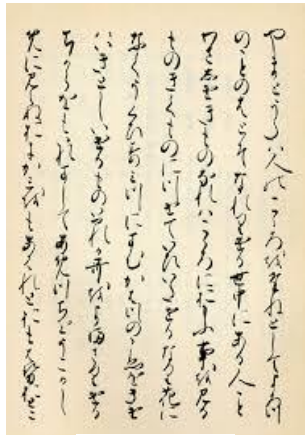 やまとうたハ人のこゝろをたねとしてよろつ
のことのはとそなれりける世中にある人こと
わさしけきものなれハこゝろにおもふ事を見る
ものきくものにつけていひいたせるなり花に
なくうくひすみつにすむかはつのこゑをきけ
はいきとしいけるものいつれか哥をよまさりける
ちからをもいれすしてあめつちをうこかし
めに見えぬおにかみをもあはれとおもはせをとこ